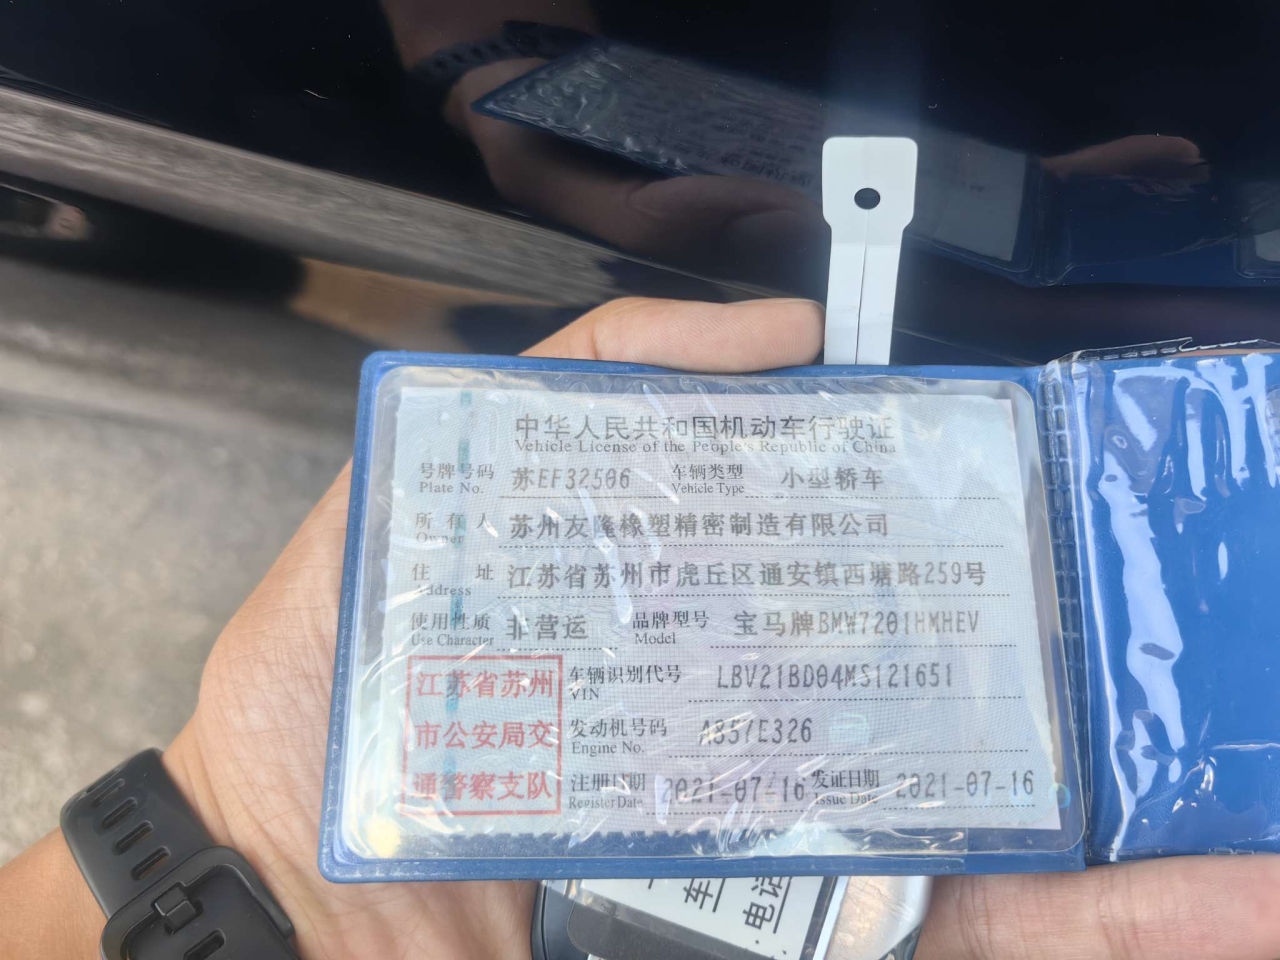 中华人民共和国机动车行驶证
Vehicle License of the People's Republic of China
号牌号码 苏EF32506 车辆类型 小型轿车
Plate No. Vehicle Type
所有人 苏州友隆橡塑精密制造有限公司
Owner
住址 江苏省苏州市虎丘区通安镇西塘路259号
Address
使用性质 非营运 品牌型号 宝马牌BMW7201HMHEV
Use Character Model
江苏省苏州
市公安局交
通警察支队
车辆识别代号 LBV21BD04MS121651
VIN
发动机号码 A857E326
Engine No.
注册日期 2021-07-16 发证日期 2021-07-16
Register Date Issue Date
车
电话